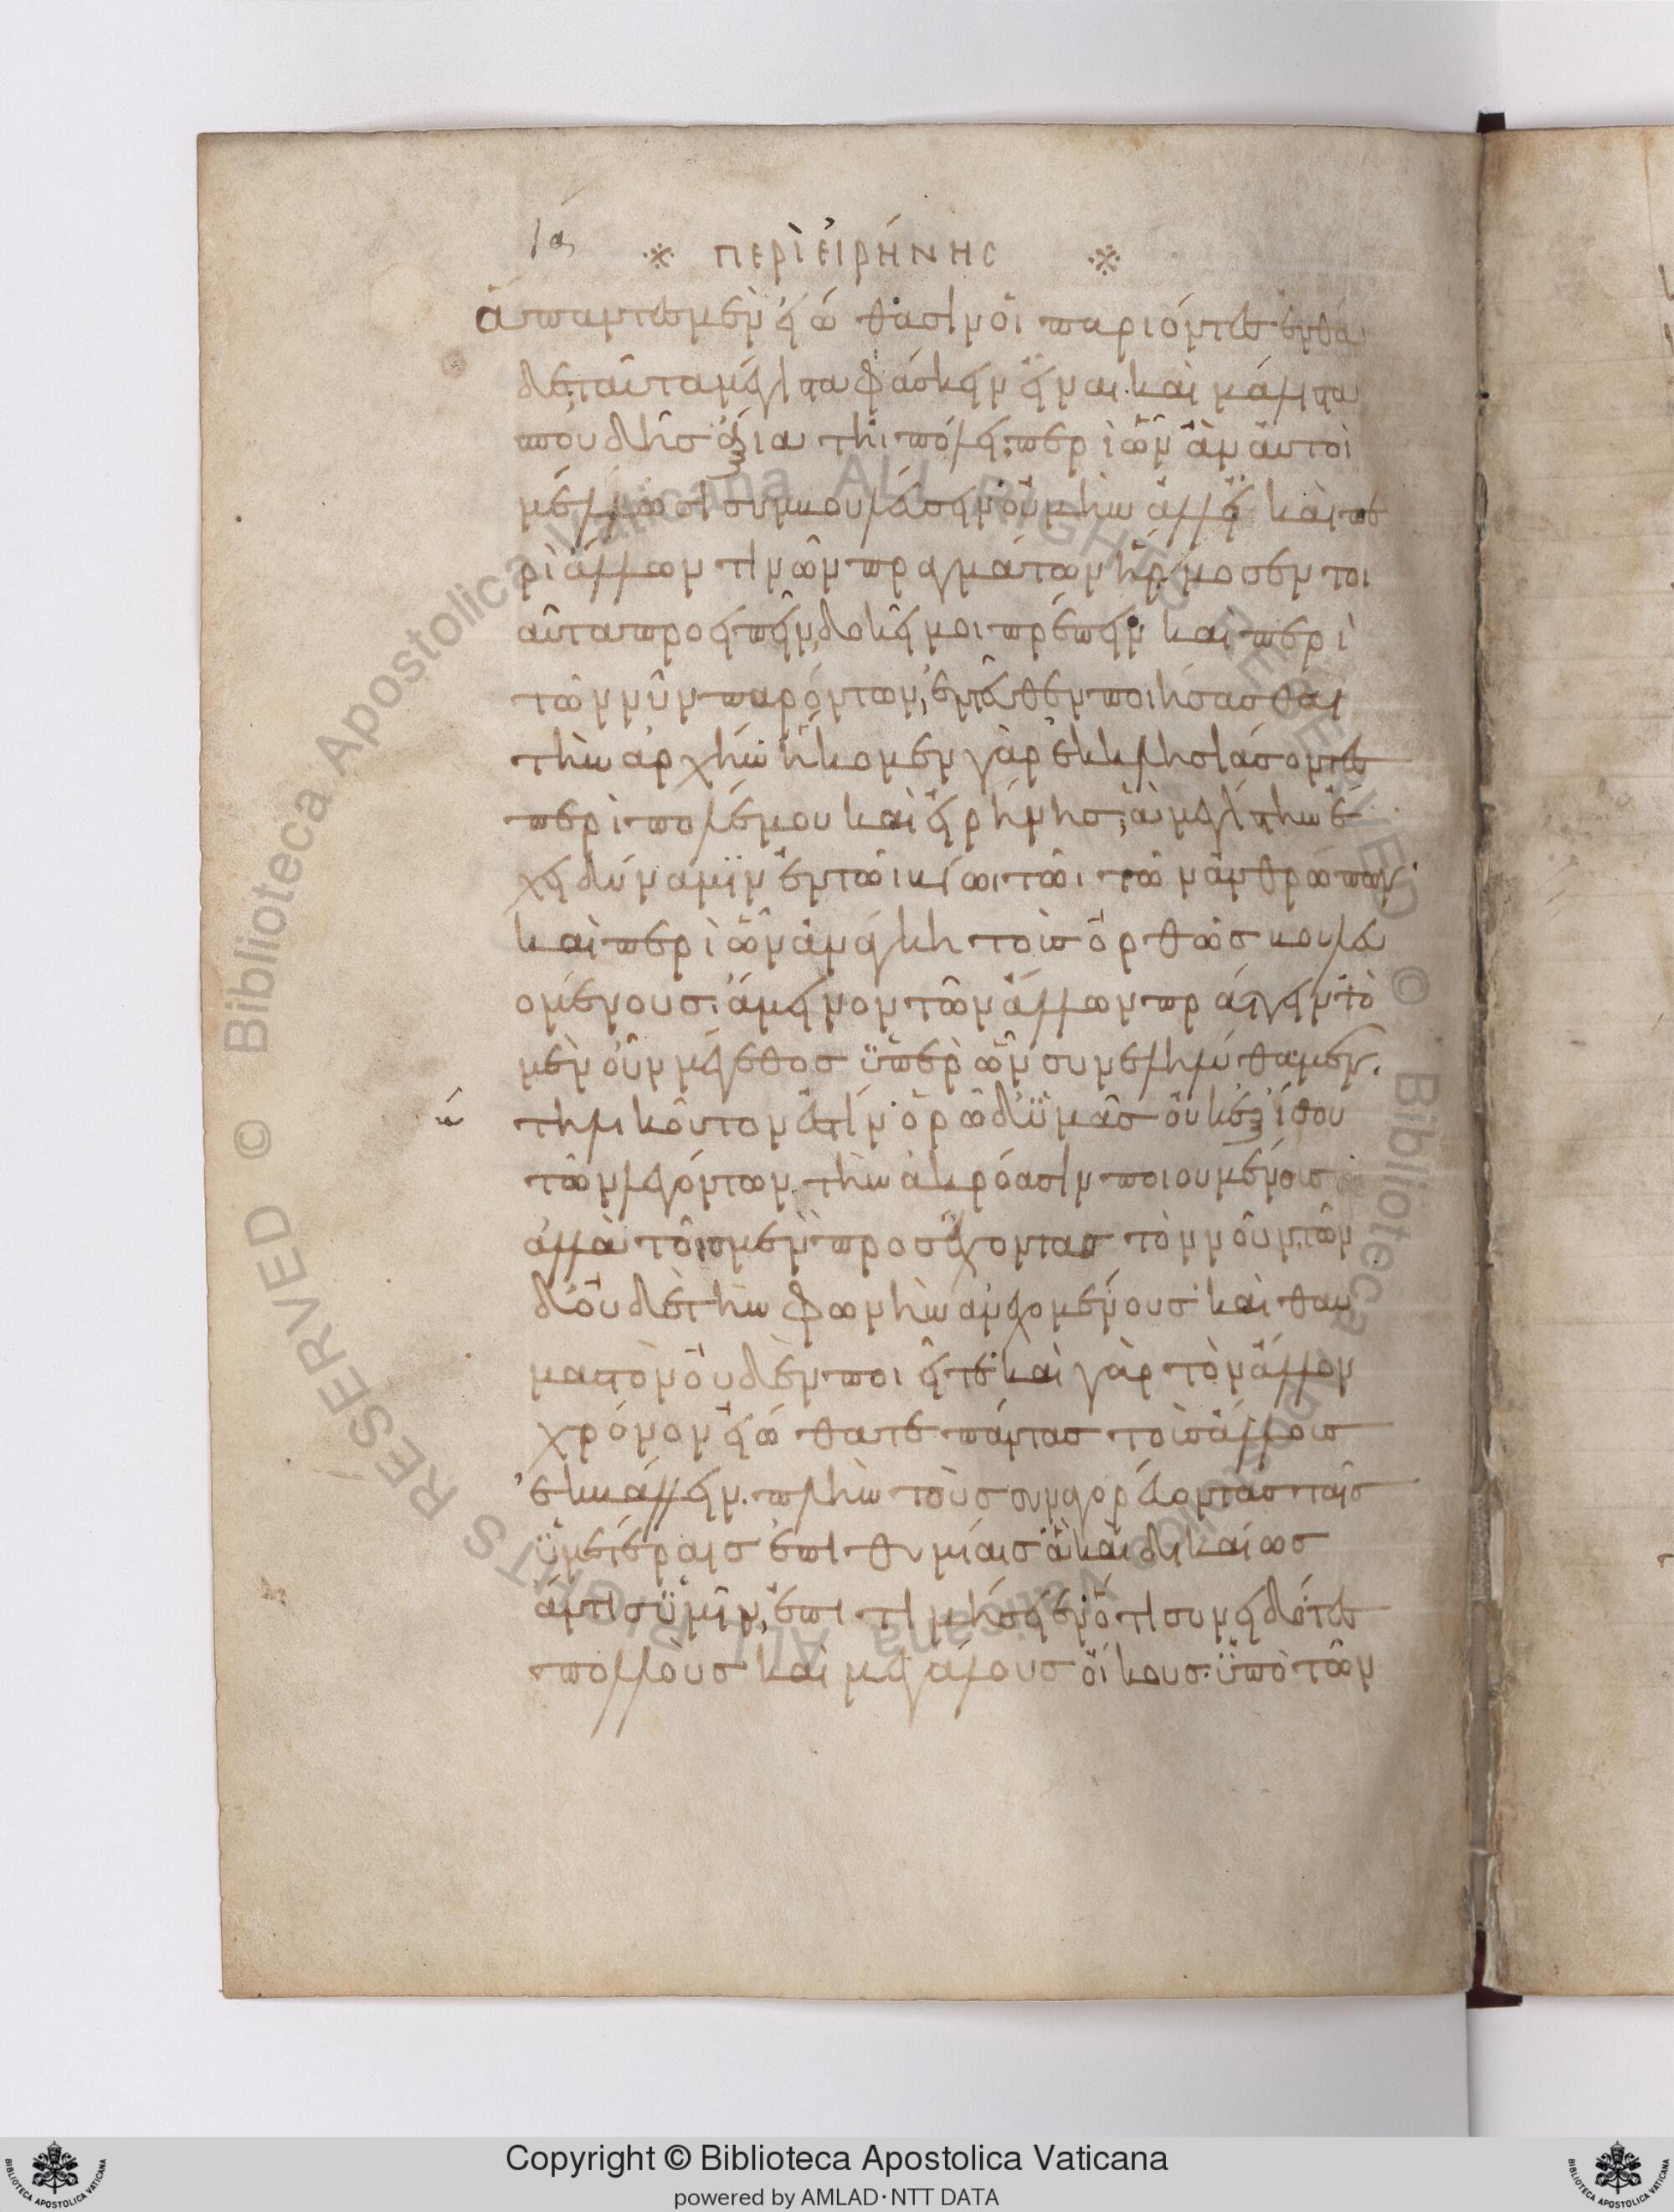 ια
※ ΠΕΡῚ ΕἸΡΉΝΗC ※
ἅπαντες μὲν εἰώθασιν οἱ παριόντες ἐνθά
δε, ταῦτα μέγιστα φάσκειν εἶναι καὶ μάλιστα
σπουδῆς ἄξια τῆι πόλει, περὶ ὧν ἂν αὐτοὶ
μέλλωσι συμβουλεύσειν· οὐ μὴν ἀλλ' εἰ καὶ πε
ρὶ ἄλλων τινῶν πραγμάτων ἥρμοσεν τοι
αῦτα προειπεῖν, δοκεῖ μοι πρέπειν καὶ περὶ
τῶν νῦν παρόντων, ἐντεῦθεν ποιήσασθαι
τὴν ἀρχήν· ἥκομεν γὰρ ἐκκλησιάσοντες
περὶ πολέμου καὶ εἰρήνης, ἃ μεγίστην ἔ
χει δύναμιν ἐν τῶι βίωι τῶι τῶν ἀνθρώπων·
καὶ περὶ ὧν ἀνάγκη τοὺς ὀρθῶς βουλευ
ομένους· ἄμεινον τῶν ἄλλων πράττειν· τὸ
μὲν οὖν μέγεθος ὑπὲρ ὧν συνεληλύθαμεν.
τηλικοῦτον ἐστίν· ὁρῶ δ' ὑμᾶς οὐκ ἐξ ἴσου
τῶν λεγόντων τὴν ἀκρόασιν ποιουμένους
ἀλλὰ τοῖς μὲν προσέχοντας τὸν νοῦν, τῶν
δ' οὐδὲ τὴν φωνὴν ἀνεχομένους· καὶ θαυ
μαστὸν οὐδὲν ποιεῖτε· καὶ γὰρ τὸν ἄλλον
χρόνον εἰώθατε πάντας τοὺς ἄλλους
ἐκβάλλειν. πλὴν τοὺς συναγορεύοντας ταῖς
ὑμετέραις ἐπιθυμίαις· ἃ καὶ δικαίως
ἄν τις ὑμῖν, ἐπιτιμήσειεν· ὅτι συνειδότες
πολλοὺς καὶ μεγάλους οἴκους· ὑπὸ τῶν
Copyright © Biblioteca Apostolica Vaticana
powered by AMLAD·NTT DATA